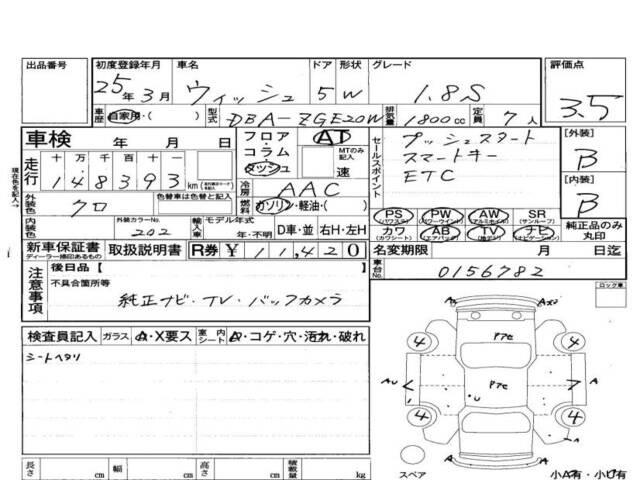 出品番号 初度登録年月 車名 ドア 形状 グレード 評価点
25年3月 ウィッシュ 5 W 1.8S 3.5
車歴 自家用・( ) 型式 DBA-ZGE20W 排気量 1800cc 定員 7人
車検 年 月 日 フロア・コラム・ダッシュ AT MTのみ記入 速
セールスポイント プッシュスタート
スマートキー
ETC
[外装] B
[内装] B
走行 十万千百十一
148393 km
冷房 AAC
燃料 ガソリン・軽油・( )
外装色 クロ 色替車は色替と記入
内装色 外装カラーNo. 202 輸入車 モデル年式 年・不明 D車・並 右H・左H
PS (パワステ) PW (パワーウインド) AW (アルミホイル) SR (サンルーフ) 純正品のみ丸印
カワ (カワシート) AB (エアバック) TV ナビ (ナビゲーション)
新車保証書 ディーラー捺印あるもの 取扱説明書 R券 ¥11,420 名変期限 月 日迄
注意事項 後日品【 】
不具合箇所等
純正ナビ・TV・バックカメラ
車台No. 0156782
現在色を記入→
ロック車
検査員記入 ガラス A・X要ス 室内シート A・コゲ・穴・汚れ・破れ
シートヘタリ
A2 AX2
4 4
アセ
AU アセ A
4 4
U
A
A A
スペア 小A有・小U有
長さ cm 幅 cm 高さ cm 積載量 kg